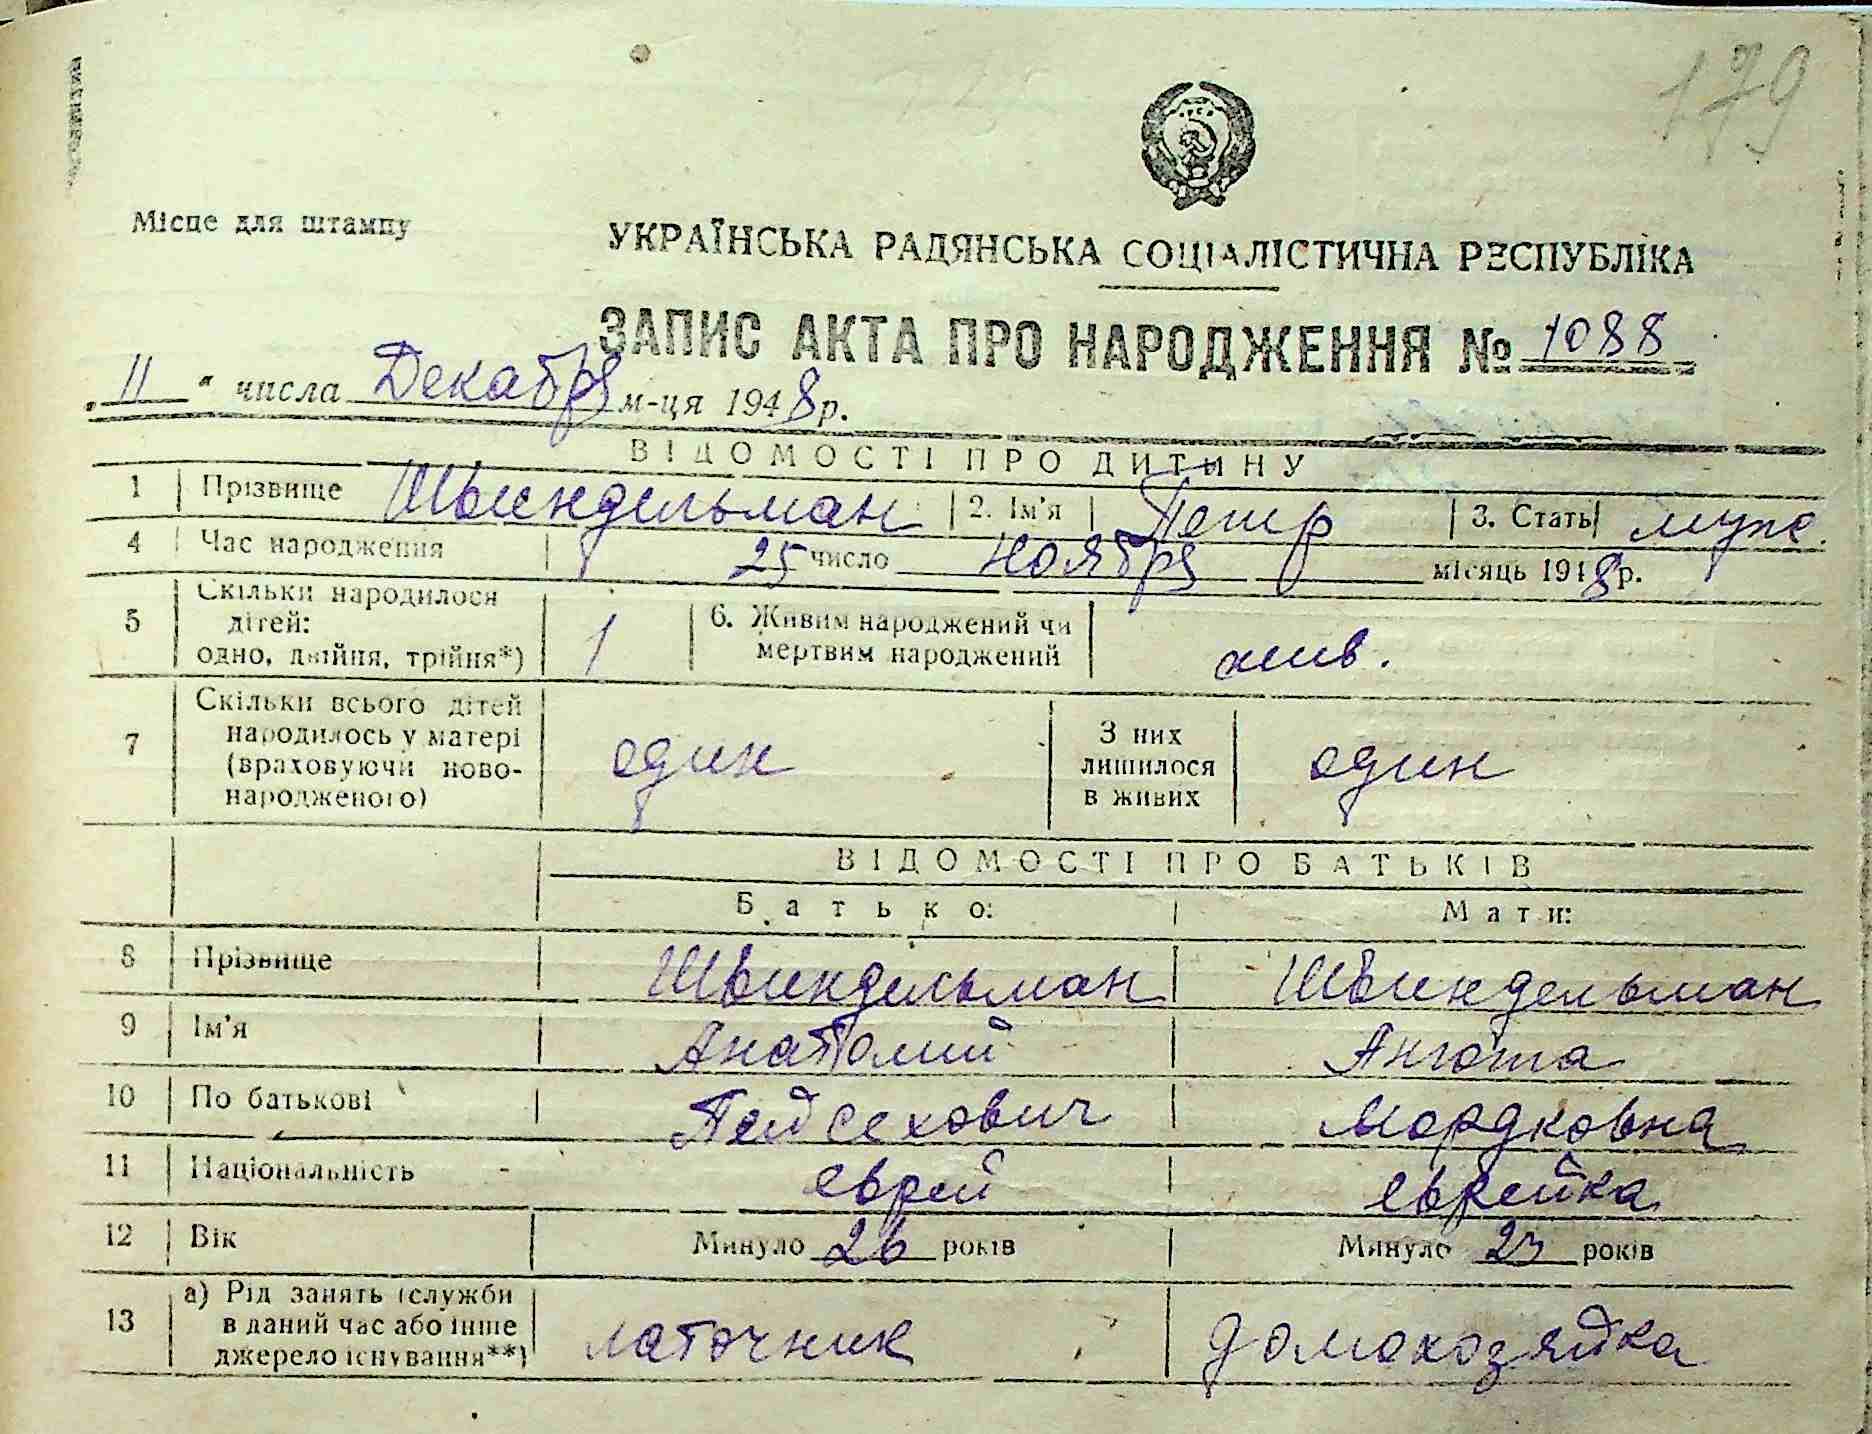 179
Місце для штампу
УКРАЇНСЬКА РАДЯНСЬКА СОЦІАЛІСТИЧНА РЕСПУБЛІКА
ЗАПИС АКТА ПРО НАРОДЖЕННЯ № 1088
„11“ числа Декабря м-ця 1948 р.
ВІДОМОСТІ ПРО ДИТИНУ
1 Прізвище Швиндельман 2. Ім'я Петр 3. Стать муж.
4 Час народження 25 число ноября місяць 1948 р.
5 Скільки народилося дітей: одно, двійня, трійня*) 1 6. Живим народжений чи мертвим народжений жив.
7 Скільки всього дітей народилось у матері (враховуючи новонародженого) один З них лишилося в живих один
ВІДОМОСТІ ПРО БАТЬКІВ
Батько: Мати:
8 Прізвище Швиндельман Швиндельман
9 Ім'я Анатолий
10 По батькові Мордковна
11 Національність еврей еврейка
12 Вік Минуло 26 років Минуло 23 років
13 а) Рід занять (служби в даний час або інше джерело існування**) лоточник домохозяйка